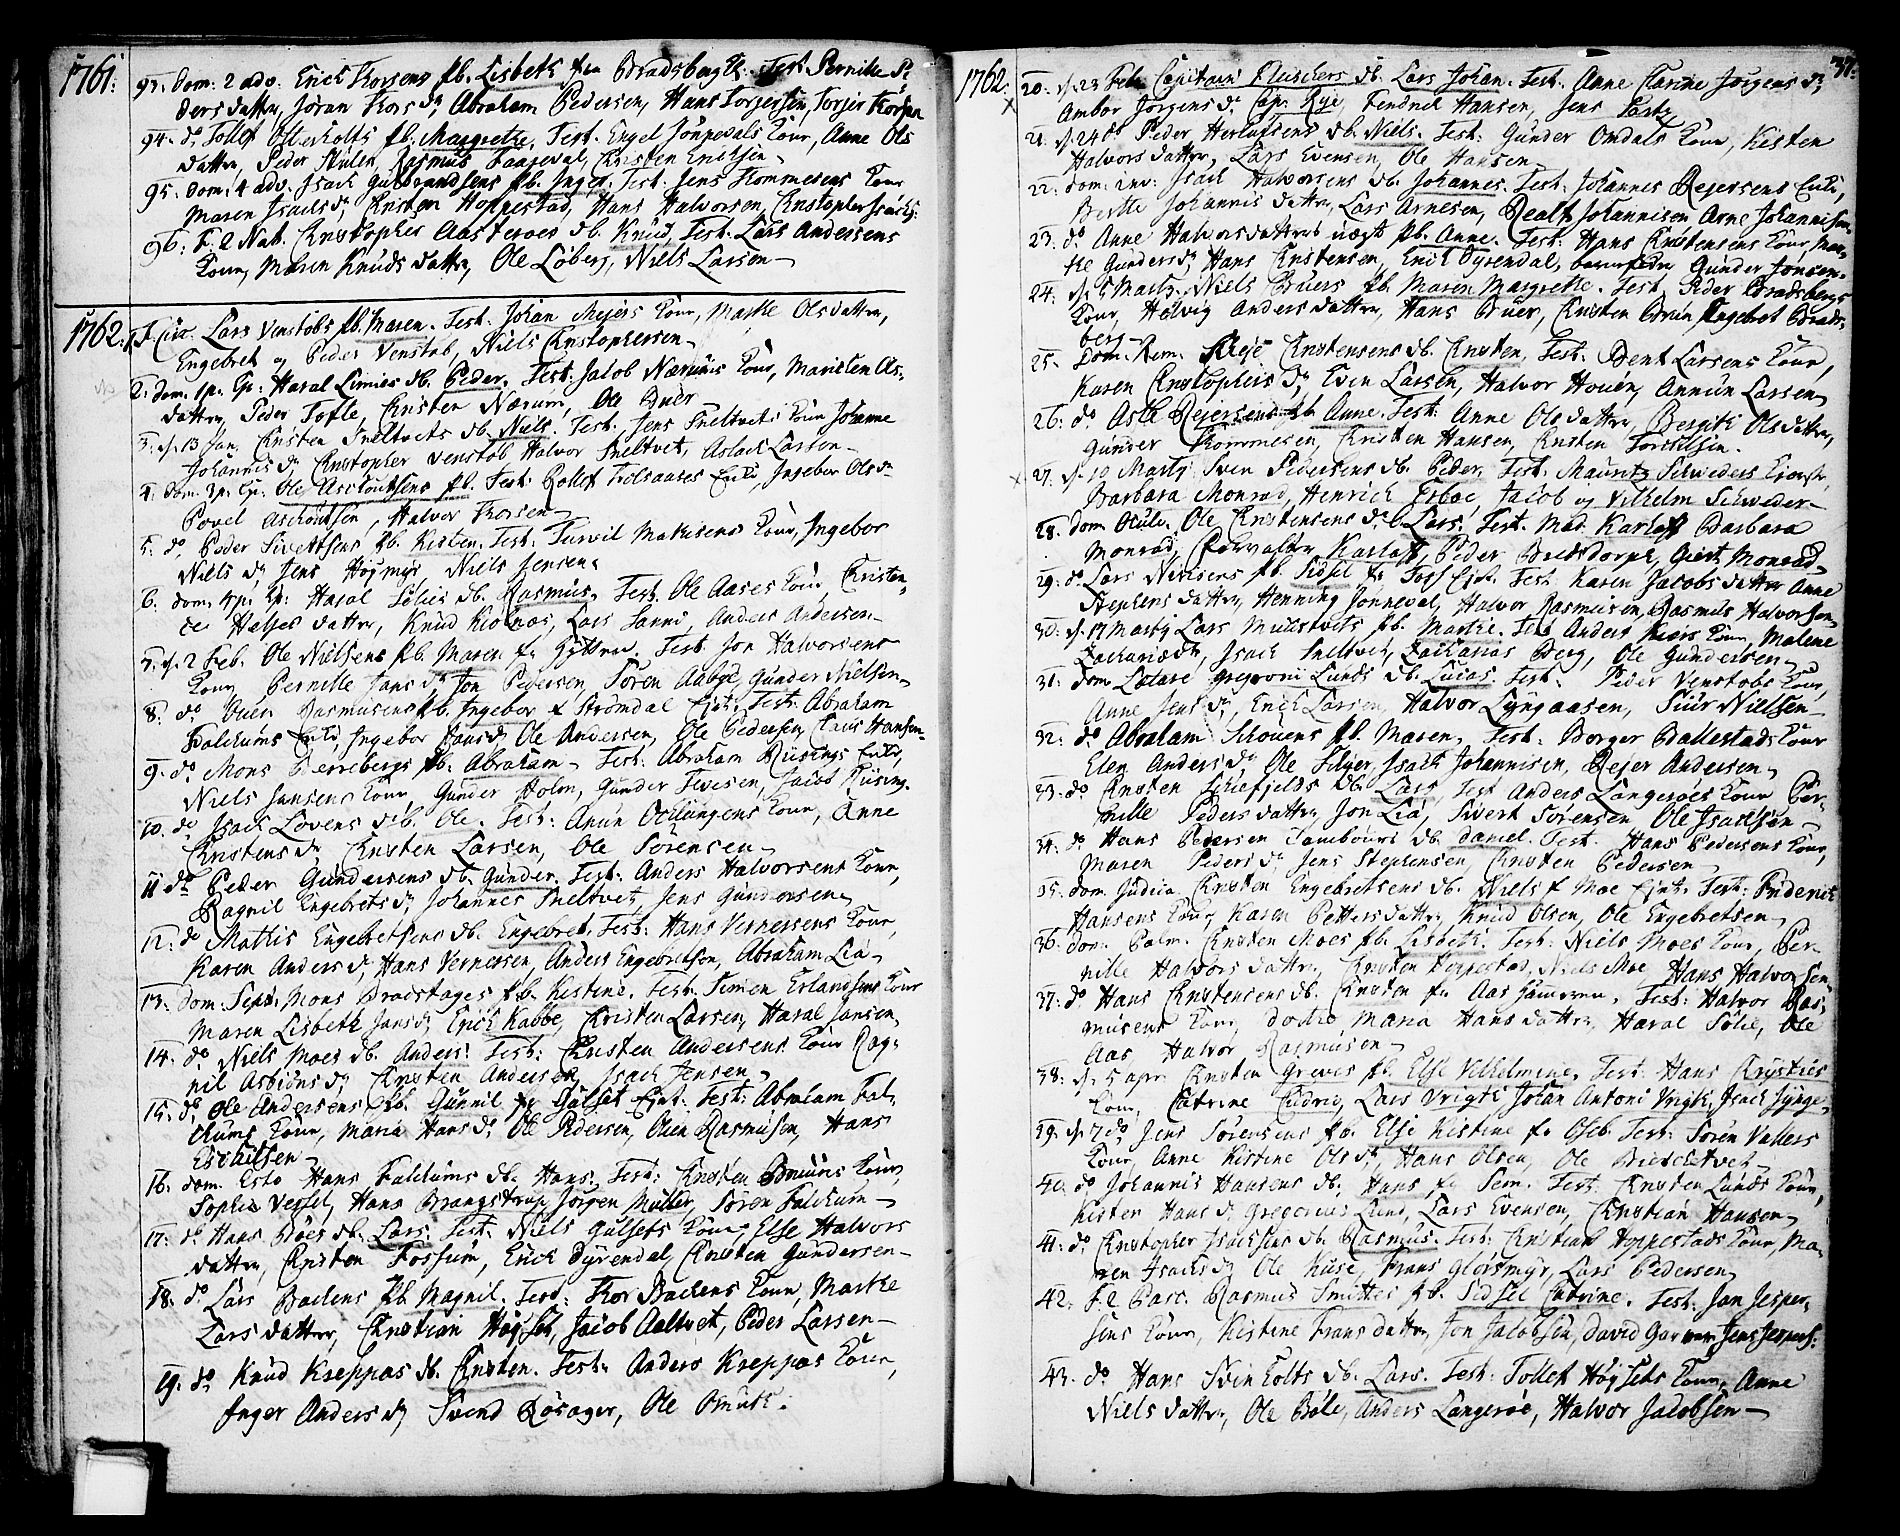 1761:
93. Dom: 2 adv. Erick Thorsens pb. Lisbeth fra Bradsberg Test. Pernille Pe-
ders datter, Joran Thors dr, Abraham Pedersen, Hans Torjersen, Torjer Thorsen
94. do Tollef Olterholts pb. Margrethe, Test. Engel Jönnevals kone, Anne Ols
datter, Peder Rasmus Christen Ericksen
95. Dom: 4 adv. Isach Gulbrandsens pb. Inger. Test: Jens Thommesens kone
Maren Isachs dr, Christen Hoppestad, Hans Halvorsen, Christopher Isachs:
96. F. 2 Nat. Christopher Aasteroes db. Knud, Test. Lars Andersens
kone, Maren Knuds datter, Ole Löberg, Niels Larsen
1762.
1. F. Circ. Lars Venstobs pb. Maren. Test: Johan Mejers kone, Marthe Ols datter,
Engebret og Peder Venstob, Niels Christophersen
2. Dom. 1 p. Ep: Haral Limies db. Peder. Test: Jacob Nærums kone, Maristen Ols-
datter, Peder Tofte, Christen Nærum, Ole Buer
3. d. 13 Jan. Christen Sneltvets db. Niels. Test: Jens Sneltvets kone Johanne
Johannis dr Christopher Venstob Halvor Sneltvet, Aslach Larsen
4. Dom. 3 p. Ep: Ole Aschoutsens pb. Test: Rollef Trolsaases Enke, Ingebor Ols dr
Povel Aschoutsen, Halvor Thorsen
5. do Peder Sivertsens pb. Kisten. Test: Turvil Mathisens kone, Ingebor
Niels dr Jens Högmyr, Niels Jensen
6. Dom: 4 p. Ep: Haral Sölies db. Rasmus. Test. Ole Aases kone, Christen,
Helges datter, Knud Kiolnæs, Lars Sanni, Anders Andersen
7. d. 2 Feb. Ole Nielsens pb. Maren fr. Test. Jon Halvorsens
kone, Pernille Jans dr Jon Pedersen, Sören Aaböe, Gunder Nielsen
8. do Ouen Rasmusens pb. Ingebor f Strömdal Ejet. Test: Abraham
Falchums Enke Ingebor Hans dr Ole Andersen, Ole Pedersen, Claus Hansen
9. do Mons Berrebergs pb. Abraham. Test: Abraham Riisings Enke,
Niels Jansens kone, Gunder Holm, Gunder Tovesen, Jacob Riising.
10. do Isach Lovens db. Ole. Test: Anun Ocklungens kone, Anne
Christens dr Christen Larsen, Ole Sörensen
11 do Peder Gundersens db. Gunder. Test: Anders Halvorsens kone,
Ragnil Engebrets dr Johannes Sneltvet, Jens Gundersen
12. do Mathis Engebretsens db. Engebret. Test: Hans Vernersens kone
Karen Anders dr, Hans Vernersen, Anders Engebretsen, Abraham Lia
13. Dom. Sept. Mons Bradstages pb. Kistine. Test: Simen Erlandsens kone
Maren Lisbeth Jans dr, Erich Kabbe, Christen Larsen, Haral Jansen,
14. do Niels Moes db. Anders. Test: Christen Andersens kone Rag-
nil Asbiöns dr Christen Andersen, Isach Jensen
15. do Ole Andersens pb. Gunnil fr Gulset Ejet. Test: Abraham Fal-
chums kone, Maria Hans dr Ole Pedersen, Ouen Rasmusen, Hans
Eschilsen
16. Dom. Esto Hans Falchums db. Hans. Test: Christen Bruuns kone,
Sophie Vessel, Hans Brangstrup Jörgen Muller, Sören Falchum
17. do Hans Böes db. Lars. Test: Niels Gulsets kone, Else Halvors
datter, Christen Fossum, Erick Dyrendal, Christen Gundersen
18. do Lars Bachens pb. Magnil. Test: Thor Bachens kone, Marthe
Lars datter, Christian Högset, Jacob Aaltvet, Peder Larsen
19. do Knud Kreppas db. Christen. Test: Anders Kreppas kone,
Inger Anders dr Svend Rösager, Ole
37.
1762.
20. d. 23 Feb. Capitain db. Lars Johan. Test. Anne Carine Jörgens dr
Ambor Jörgens dr Cap. Rye, Fendrick Hansen, Jens
21. d. 24 do Peder Herlufsens db. Niels. Test: Gunder Omdals kone, Kisten
Halvors datter, Lars Evensen, Ole Hansen
22. Dom: inv: Isach Halvorsens db. Johannes. Test: Johannes Rejersens Enke,
Berthe Johannis datter, Lars Arnesen, Realf Johannisen Arne Johannisen
23. do Anne Halvorsdatters uægt pb. Anne. Test: Hans Christensens kone, Mar-
the Gunders dr Hans Christensen, Erick Dyrendal, Gunder Jonsen
24. d. 5 Marty. Niels Buers pb. Maren Margrethe. Test. Peder Bradsbergs
kone, Helvig Anders datter, Hans Buer, Christen Bruun Engebret Brads-
berg
25. Dom. Rem. Christensens db. Christen, Test: Bent Larsens kone,
Karen Christophers dr, Even Larsen, Halvor Houen, Annun Larsen
26. do Asle Rejersens pb. Anne. Test: Anne Ols datter, Bergith Olsdatter,
Gunder Thommesen, Christen Hansen, Christen Torkilsen.
27. d. 10 Marty Sven Pedersens db. Peder, Test: Mauritz Schweders
Barbara Monrad, Henrich Jacob og Vilhelm Schweder
28. Dom. Oculi. Ole Christensens db. Lars. Test. Mad. Barbara
Monrad, Peder Bredsdorph, Giert Monrad
29. do Lars Nirisens pb. Sidsel fr. Foss Ejet. Test: Karen Jacobs datter Anne
Stephens datter, Henning Jönneval, Halvor Rasmusen, Rasmus Halvorsen
30. d. 17 Marty Lars Mulstvets pb. Marthe. Test Anders kone, Malene
Zachariæ dr, Isach Sneltvet, Zacharias Berg, Ole Gundersen
31. Dom. Lætare Gregorii Lunds db. Lucas. Test: Peder Venstobs kone,
Anne Jens dr, Erick Larsen, Halvor Lyngaasen, Siur Nielsen
32. do Abraham Schouens pb. Maren, Test: Borger Ballestads kone
Elen Anders dr Ole Isach Johannisen, Rejer Andersen
33. do Christen Schiefjelds db. Lars, Test Anders Langeröes kone Per-
nille Peders datter, Jon Lia, Sivert Sörensen Ole Isachsen
34. do Hans Pedersen Tambours db. Daniel. Test. Hans Pedersens kone,
Maren Peders dr Jens Stephensen, Christen Pedersen
35. Dom. Judica Christen Engebretsens db. Niels f Moe Ejet. Test: Friderich
Hansens kone, Karen Petters datter, Knud Olsen, Ole Engebretsen
36. Dom. Palm. Christen Moes pb. Lisbeth. Test: Niels Moes kone, Per-
nille Halvors datter, Christen Hoppestad, Niels Moe Hans Halvorsen
37. do Hans Christensens db. Christen fr. Aas Test: Halvor Ras-
musens kone, Dorthe Maria Hans datter, Haral Sölie, Ole
Aas Halvor Rasmusen
38. d. 5 apr. Christen Greves pb. Else Vilhelmine. Test: Hans Chrysties
kone, Catrine Lars Vrigth Johan Antoni Vrigth, Isach
39. d. 7 do Jens Sörensens pb. Else Kistine fr. Oseb. Test: Sören Vallers
kone, Anne Kistine Ols dr, Hans Olsen, Ole
40. do Johannis Hansens db. Hans fr. Sem. Test. Christen Lunds kone,
Kisten Hans dr Gregorius Lund, Lars Evensen, Christian Hansen
41. do Christopher Isachsens db. Rasmus. Test: Christian Hoppestads kone, Ma-
ren Isachs dr Ole Huse, Frans Glörsmyr, Lars Pedersen
42. F. 2 Pasc. Rasmus Smitter pb. Sidsel Catrine. Test: Jan Jesper-
sens kone, Kistene Frans datter, Jon Jacobsen, David Jens Jespers:
43. do Hans Svinholts db. Lars. Test: Tollef Högsets kone, Anne
Niels datter, Ole Böle, Anders Langeröe, Halvor Jacobsen